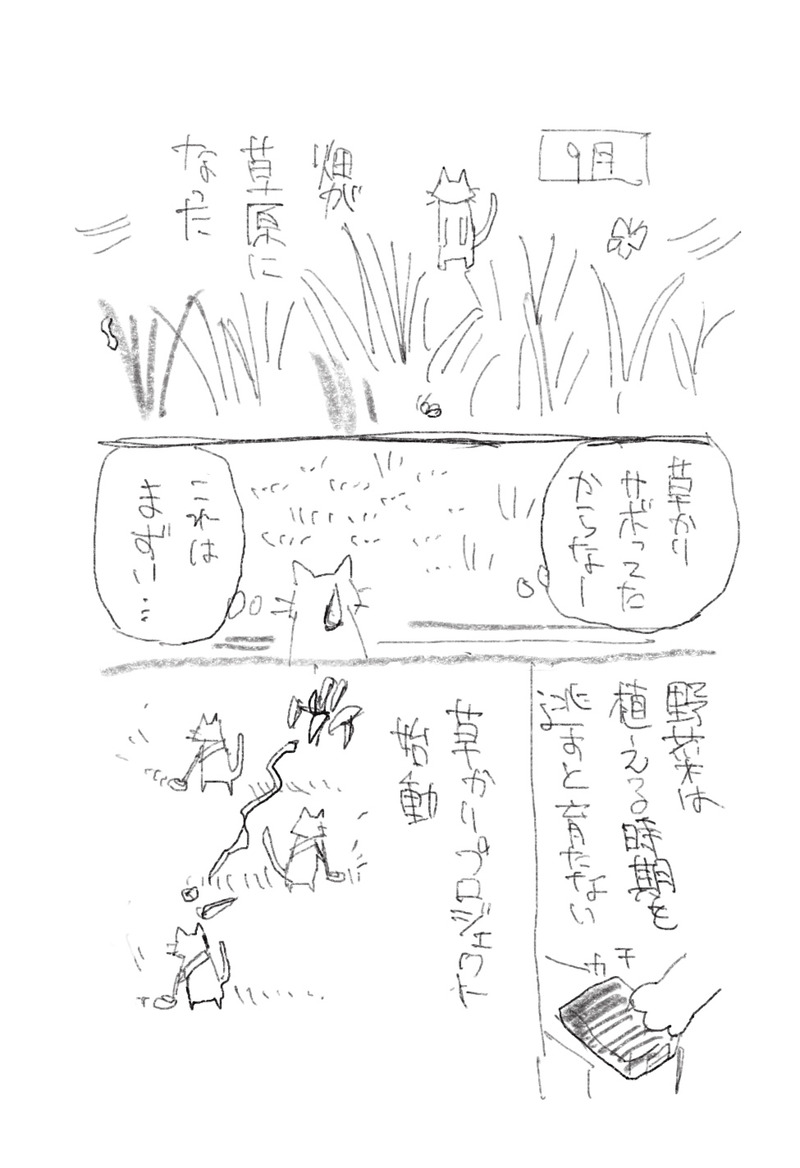 9月
畑が
草原に
なった
草かり
サボってた
からなー
これは
まずい…
野菜は
植える時期を
逃すと育たない
カチ
草かりプロジェクト
始動